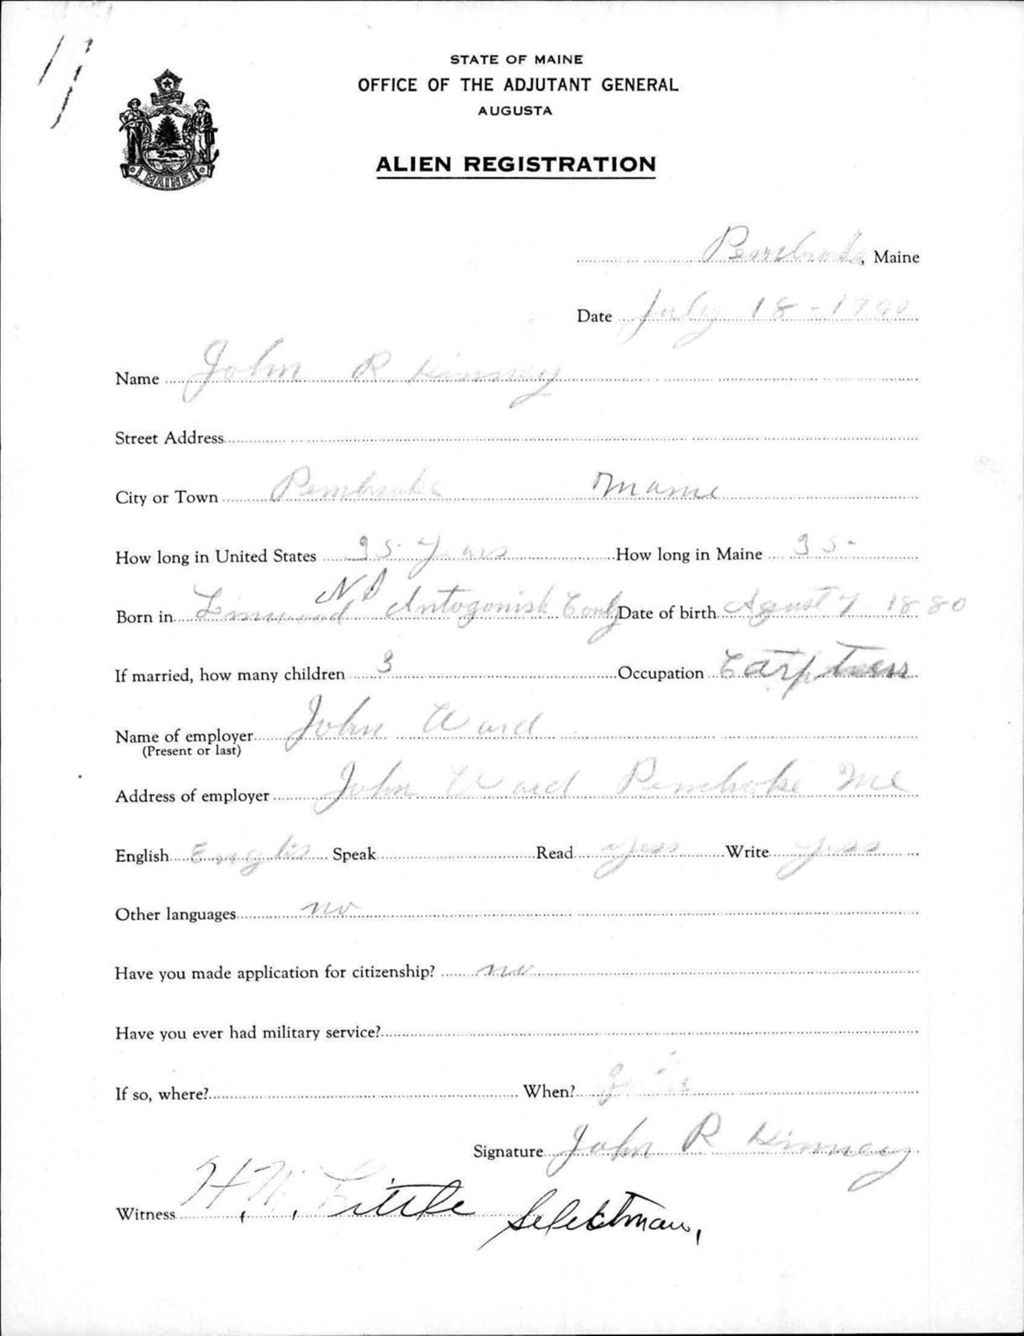 STATE OF MAINE
OFFICE OF THE ADJUTANT GENERAL
AUGUSTA
MAINE
ALIEN REGISTRATION
Pembroke, Maine
Date July 18-1940
Name John R Kinney
Street Address
City or Town Pembroke Maine
How long in United States 35 Years How long in Maine 35-
Born in NS Antogonish Date of birth Agust 7 1880
If married, how many children 3 Occupation
Name of employer John Ward
(Present or last)
Address of employer John Ward Pembroke Me
English Englis Speak Read Yess Write Yess
Other languages no
Have you made application for citizenship? no
Have you ever had military service?
If so, where? When?
Signature John R Kinney
Witness H. W. Little Selektman,